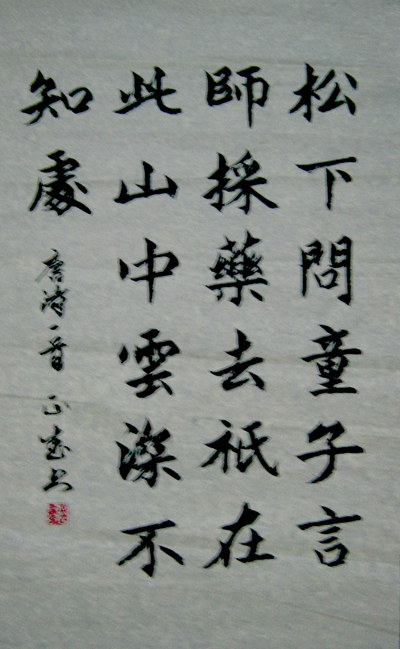 松下問童子言
師採藥去祇在
此山中雲深不
知處
唐詩一首